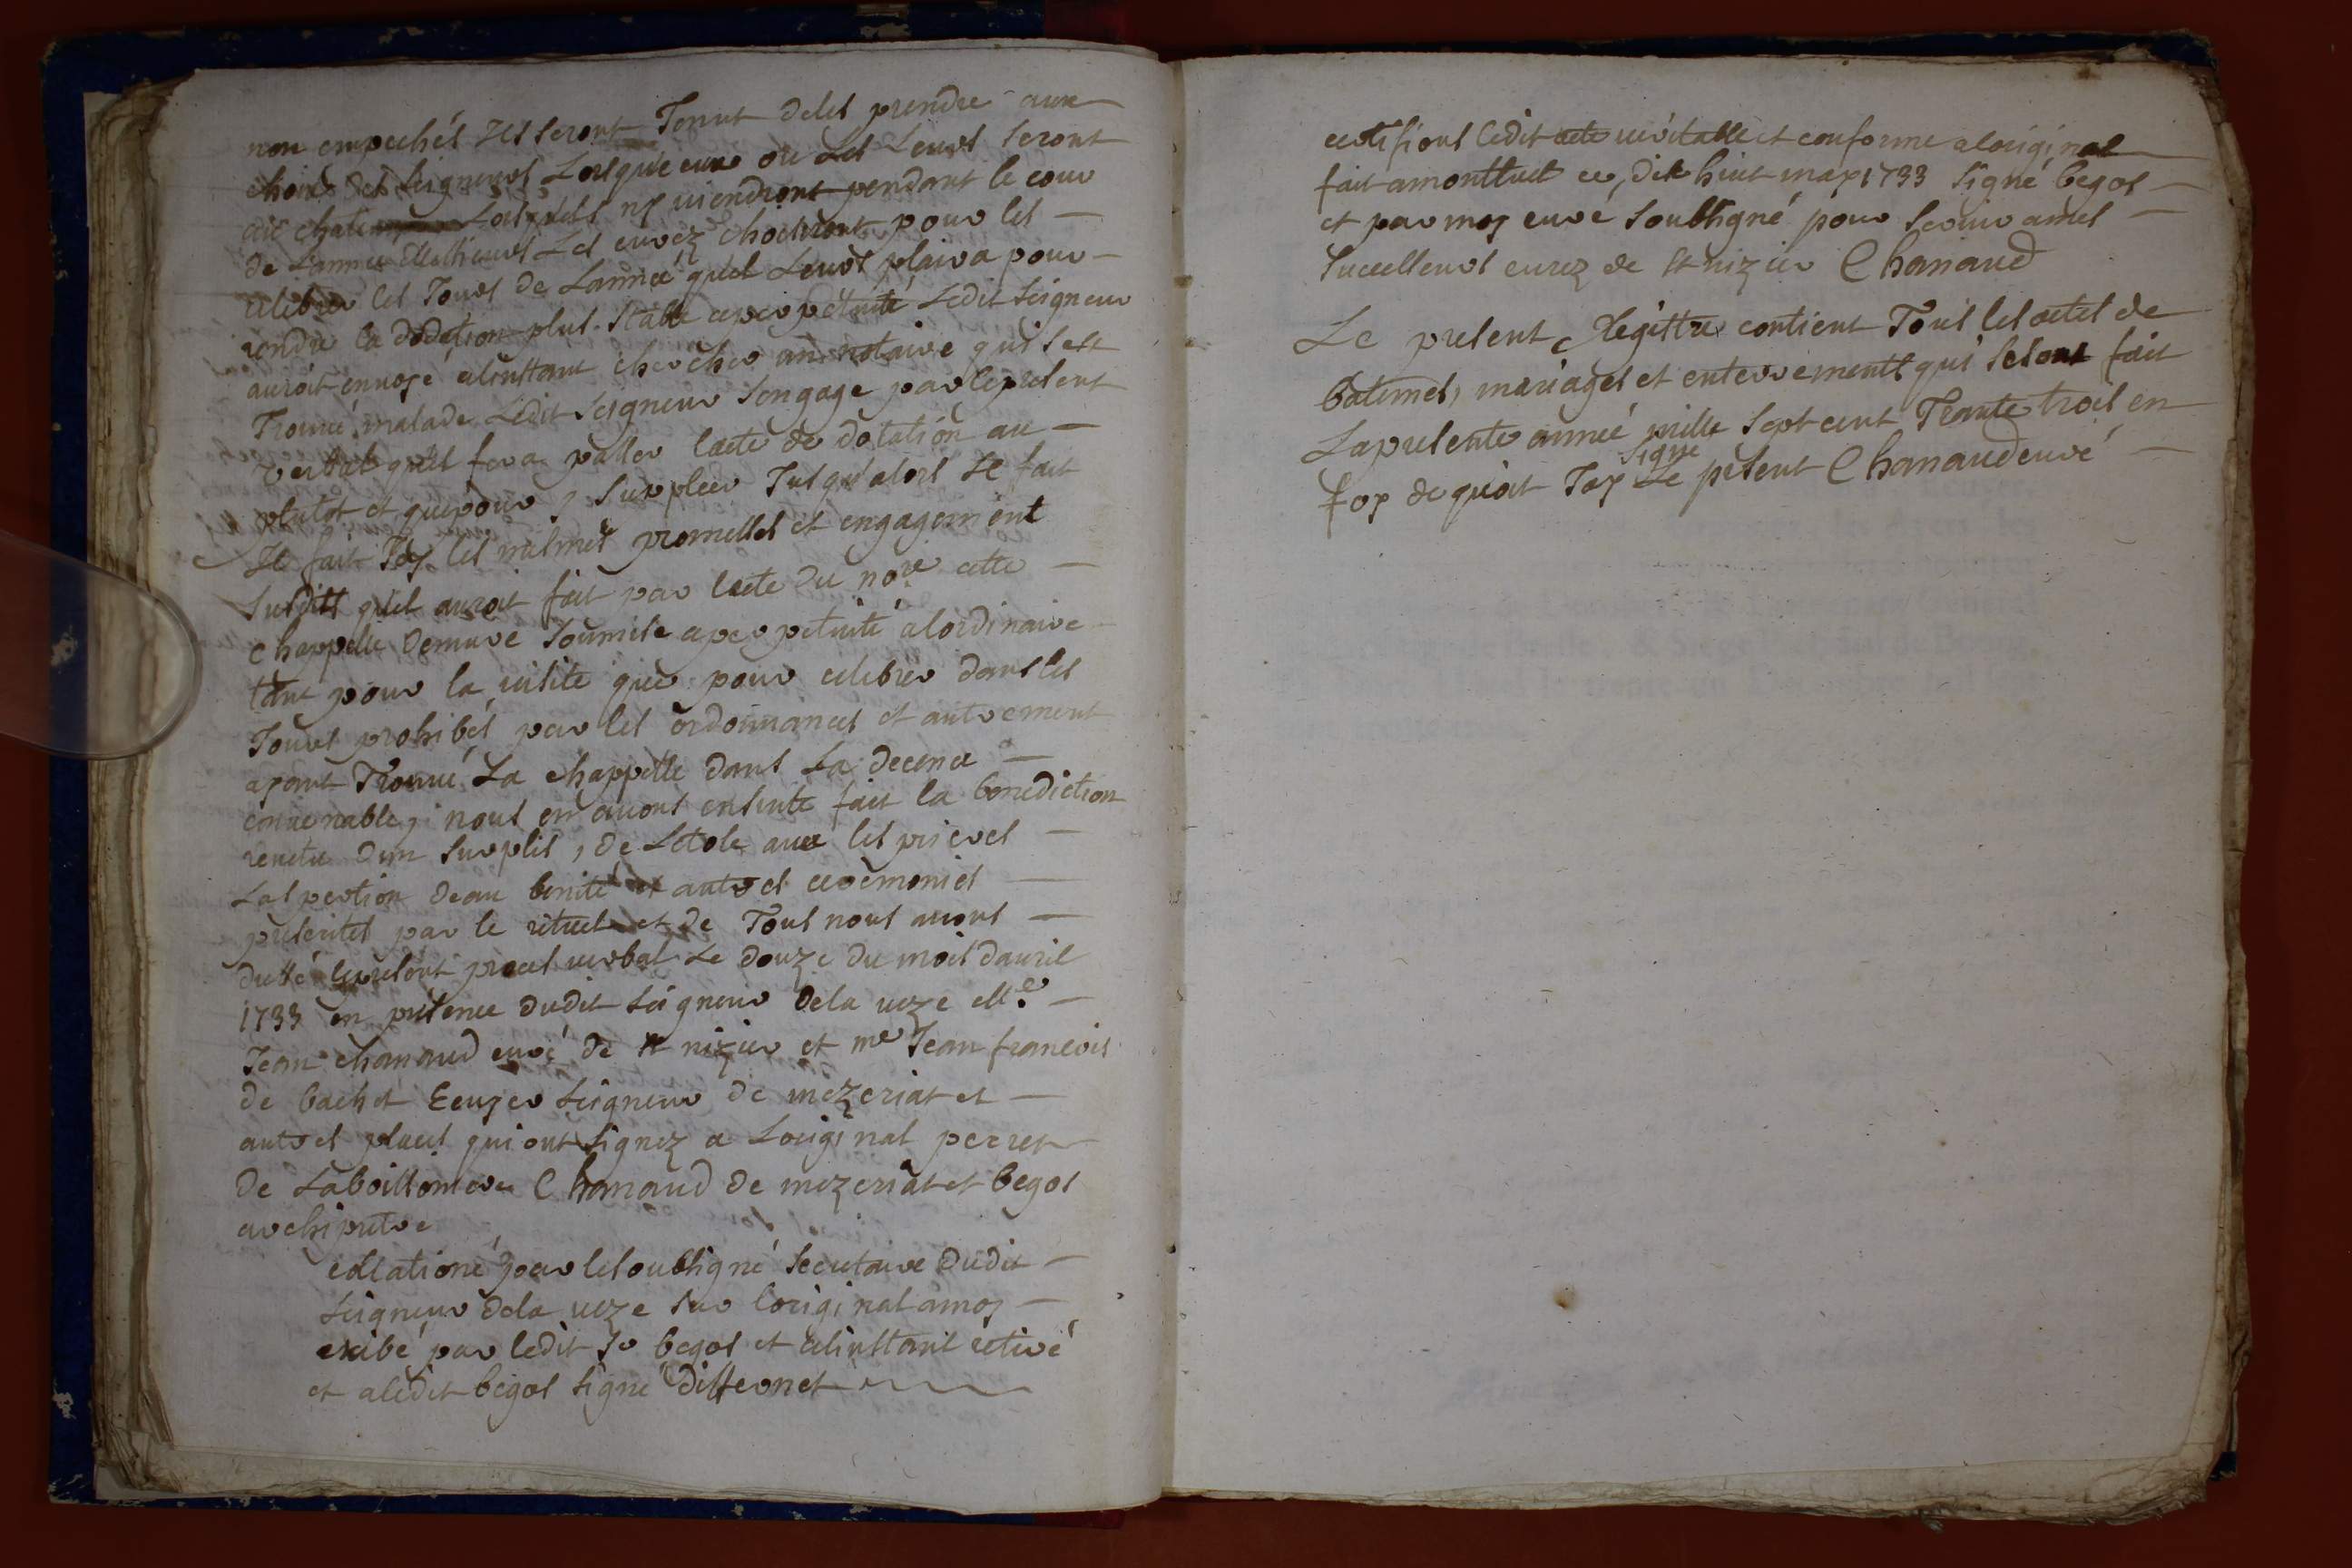 non empechés Ils seront Tenut deles prendre aux
choix des seigneurs Lorsque eux ou Les Leurs seront
au chateau Lorsquils ny viendront pendant le cour
de Lannée dailleurs Les curez choisiront pour les
celebrer les Jours de Lannée quil Leurs plaira pour
rendre la dodation plus stable aperpetuité Ledit seigneur
auroit envoyé alinstant chercher un notaire qui sest
Trouvé malade Ledit seigneur sengage par lepresent
verbal quil fera passer lacte de dotation au
plutot et que pour y supleer Jusqualors Il fait
Il fait Icy les mesmes promesses et engagement
susdits quil auroit fait par lacte du nore cette
chappelle demure soumise aperpetuité alordinaire
tant pour la visite que pour celebrer dans les
Jours prohibés par les ordonnances et autrement
ayant Trouvé La chappelle dans La decence
convenable, nous en avons ensuite fait la benediction
revetu dun surplis, de Letole avec les prieres
Laspertion deau benite et autres ceremonies
prescrites par le rituel et de Tous nous avons
dressé lepresent procest verbal Le douze du mois davril
1733 en presence dudit seigneur dela veze Mre
Jean chanaud curé de st nizier et mre Jean francois
de bachet Ecuyer seigneur de mezeriat et
autres places qui ont signez a Loriginal perret
de Laboissoniere Chanaud de mezeriat et begos
archipretre
collationé par lesoubsigné secretaire dudit
seigneur dela veze sur loriginal amoy
exibé par ledit sr begos et alinstant retiré
et aledit begos signé disteonet
certifions ledit acte veritable et conforme aloriginal
fait amonttuel ce, dix huit may 1733 signé begos
et par moy curé soubsigné pour servir ames
successeurs curez de st nizier Chanaud
Le present Regittre contient Tous les actes de
batemes, mariages et enterrements qui sesont fait
Lapresente année mille sept cent Trante trois en
foy dequoit Jay signe Le present Chanaud curé